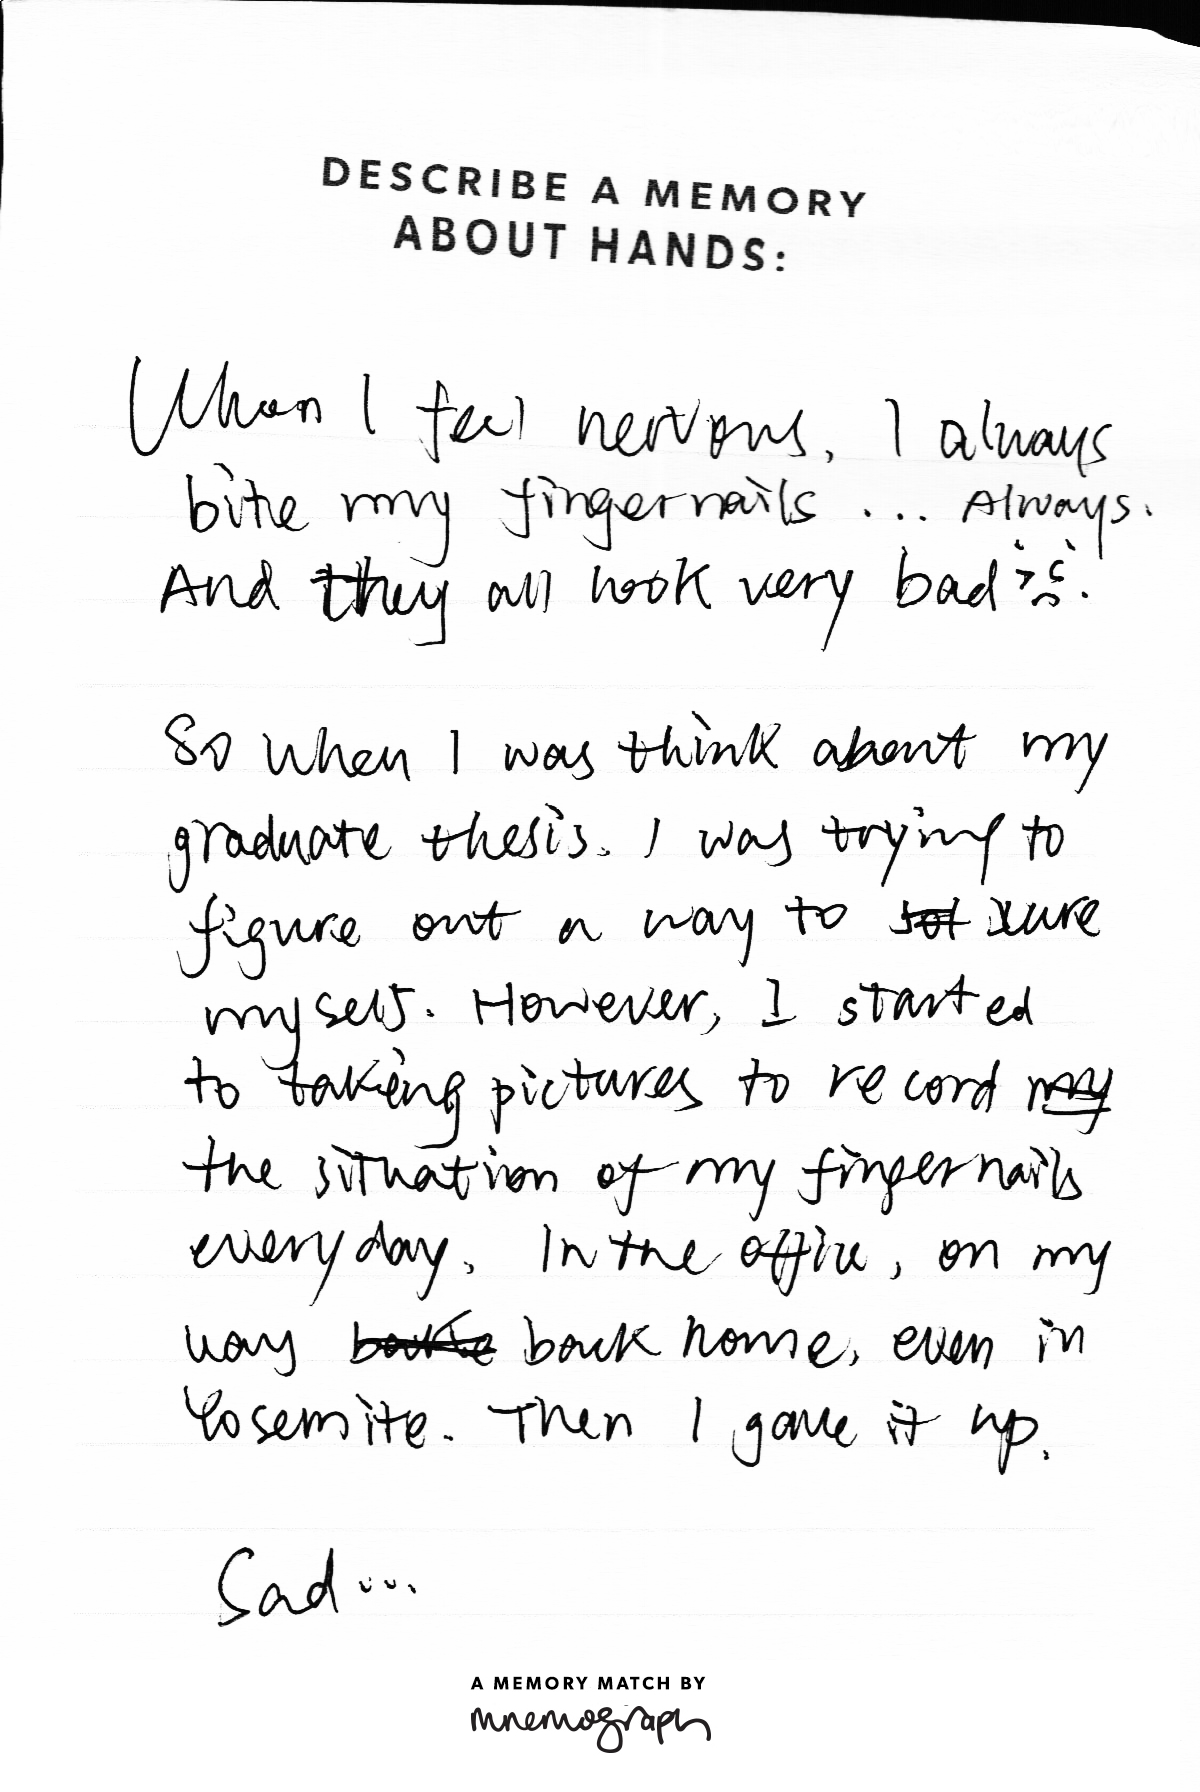 DESCRIBE A MEMORY
ABOUT HANDS:
When I feel nervous, I always
bite my fingernails ... Always.
And they all look very bad
So when I was think about my
graduate thesis. I was trying to
figure out a way to cure
myself. However, I started
to taking pictures to record my
the situation of my fingernails
everyday. In the office, on my
way back home, even in
Yosemite. Then I gave it up.
Sad...
A MEMORY MATCH BY
mnemograph